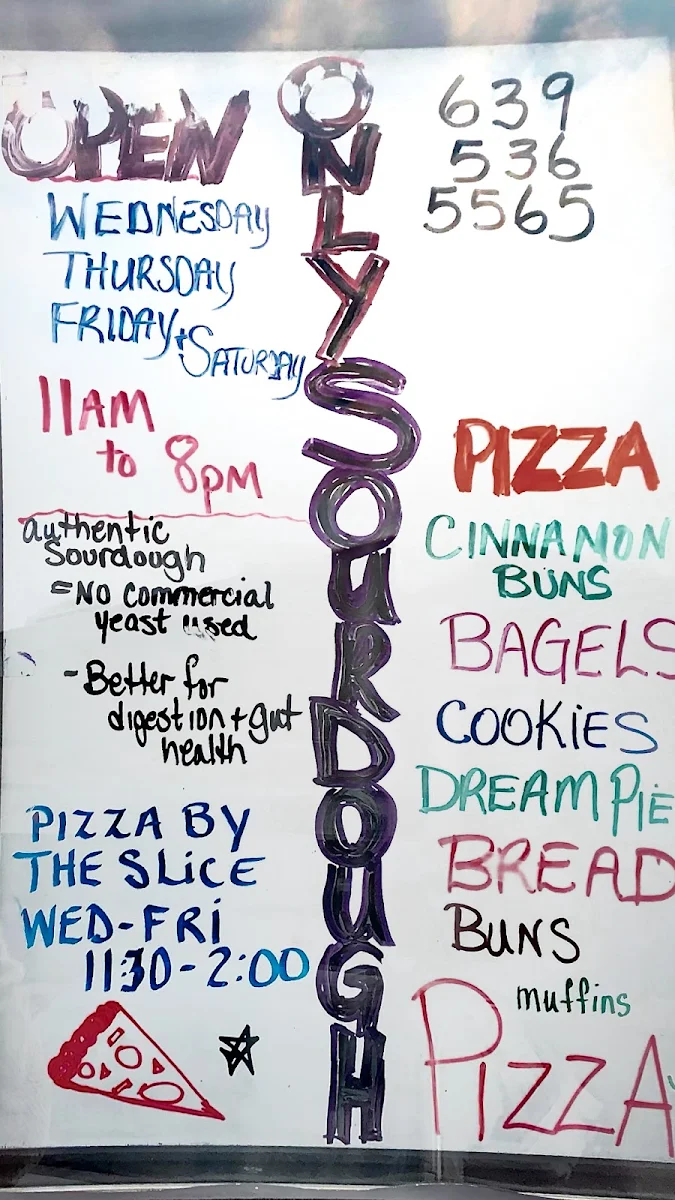 OPEN
WEDNESDAY
THURSDAY
FRIDAY + SATURDAY
11AM
to 8pm
authentic
Sourdough
= No commercial
yeast used
- Better for
digestion + gut
health
PIZZA BY
THE SLiCE
WED-FRi
1130-2:00
ONLY SOURDOUGH
639
536
5565
PIZZA
CINNAMON
BUNS
BAGELS
COOKiES
DREAM PiE
BREAD
BUNS
muffins
PIZZA